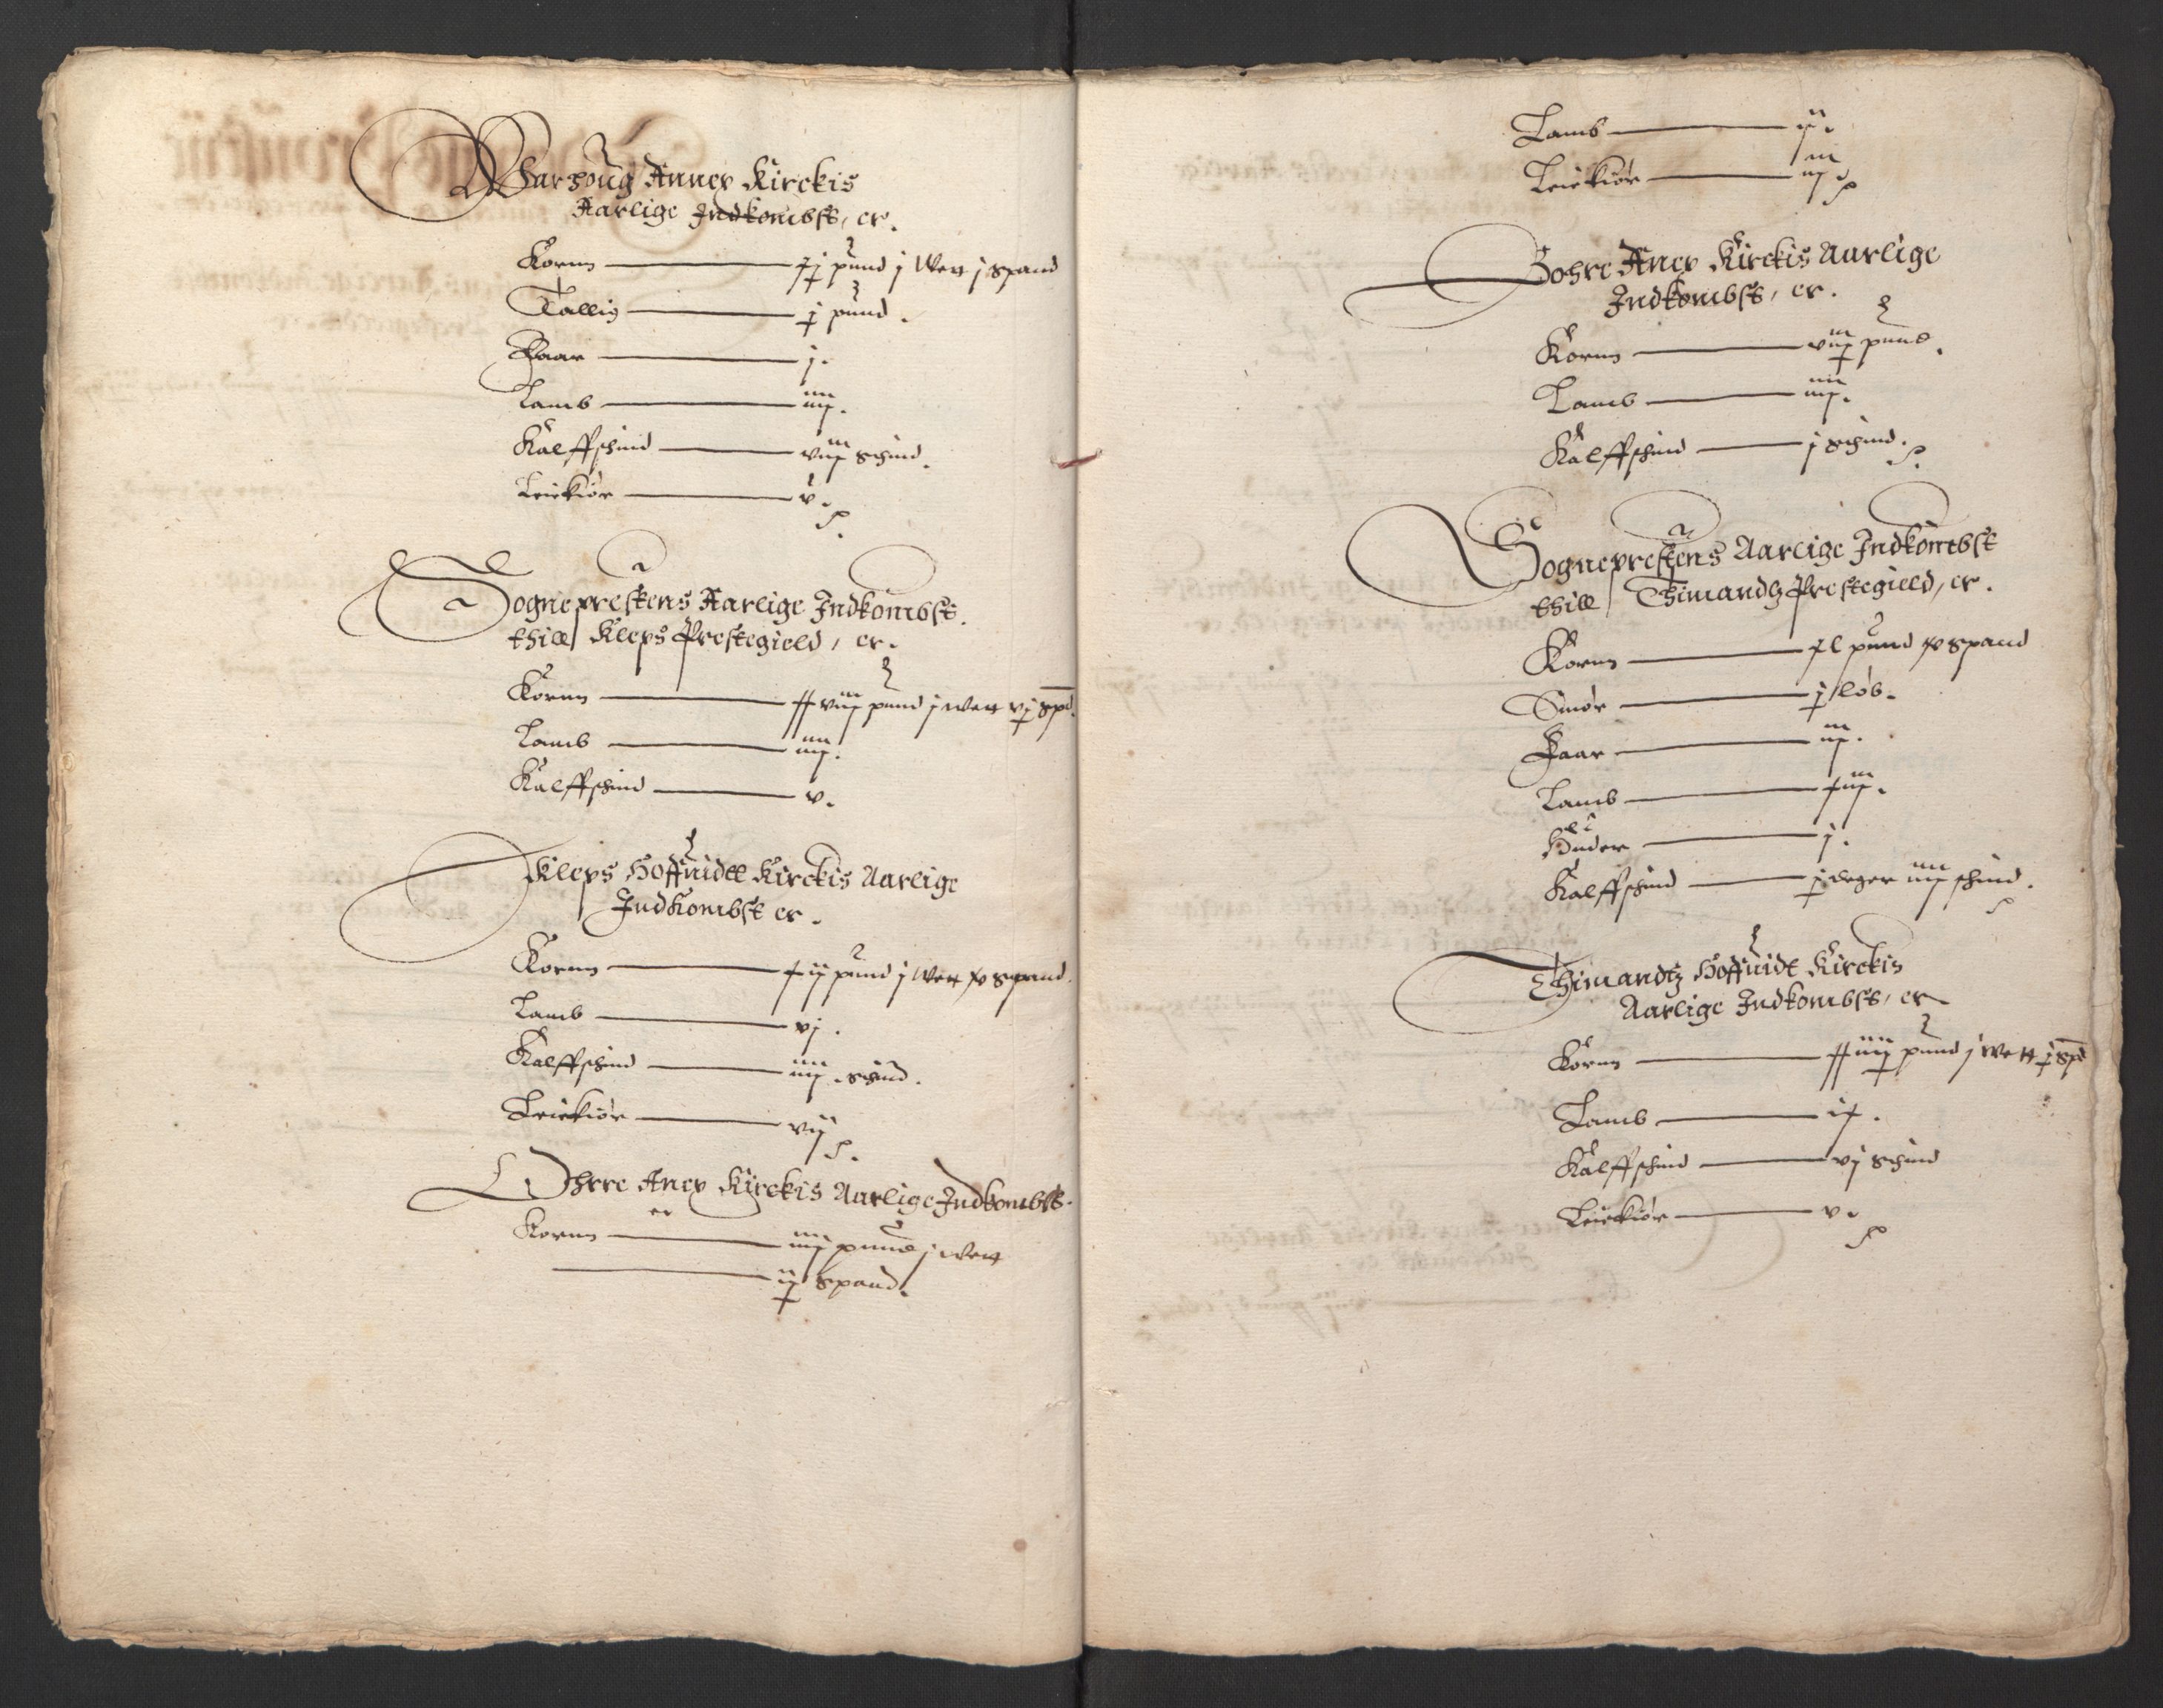 Warhoug Annex Kirckis
Aarlige Indkombst, er.
Kornn xj pund j Wett j spand
Tallig j pund.
Faar j.
Lamb iiij.
Kalffschind viij schind.
Leiekiør v.
Sogneprestens Aarlige Indkombst.
thill Kleps Prestegield, er.
Kornn xxviij pund j wett vj spd.
Lamb iiij.
Kalffschind v.
Kleps Hoffuidt Kirckis Aarlige
Indkombst er.
Kornn xij pund j Wett xv spand.
Lamb vj.
Kalffschind iiij schind.
Leiekiør vij
Ohrre Anex Kirckis Aarlige Indkombst.
er
Kornn iiij pund j Wett
ij spand.
Lamb ij.
Leiekiør iij
Bohre Anex Kirckis Aarlige
Indkombst, er.
Kornn viij pund.
Lamb iiij.
Kalffschind j schind.
Sogneprestens Aarlige Indkombst
thill Thimandtz Prestegield, er.
Kornn xl pund xv spand
Smør j løb.
Faar iij.
Lamb xiij.
Huder j.
Kalffschind j deger iiij schind.
Thimandtz Hoffuidt Kirckis
Aarlige Indkombst, er
Kornn xxiiij pund j Wett j spd
Lamb ix.
Kalffschind vj schind
Leiekiør v.